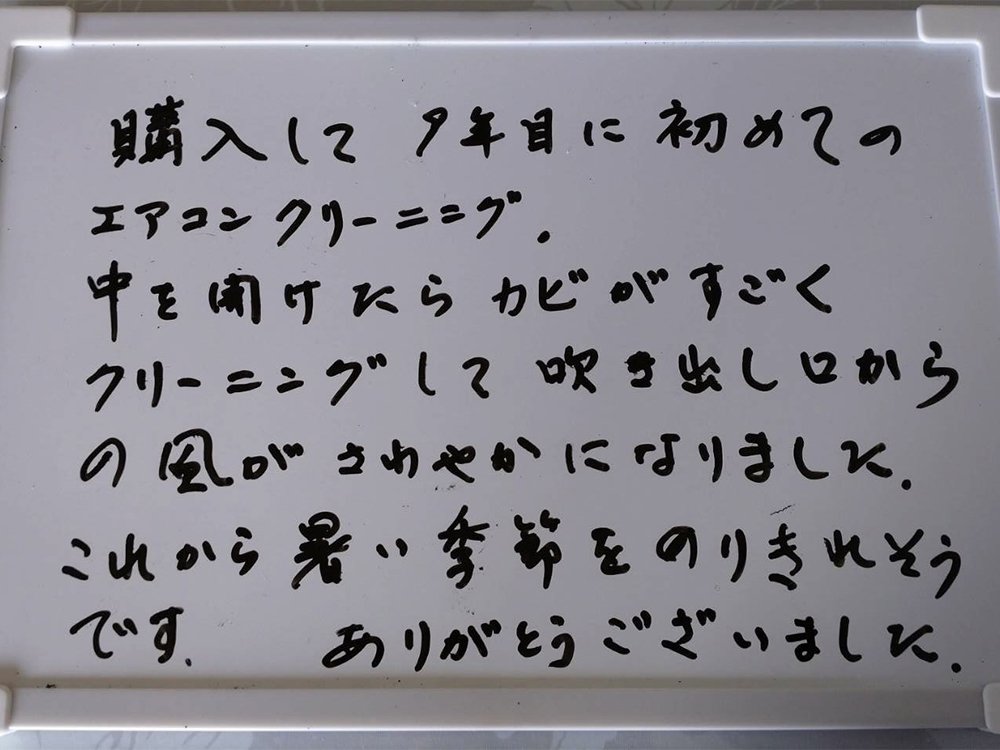 購入して9年目に初めての
エアコンクリーニング.
中を開けたらカビがすごく
クリーニングして吹き出し口から
の風がさわやかになりました.
これから暑い季節をのりきれそう
です. ありがとうございました.